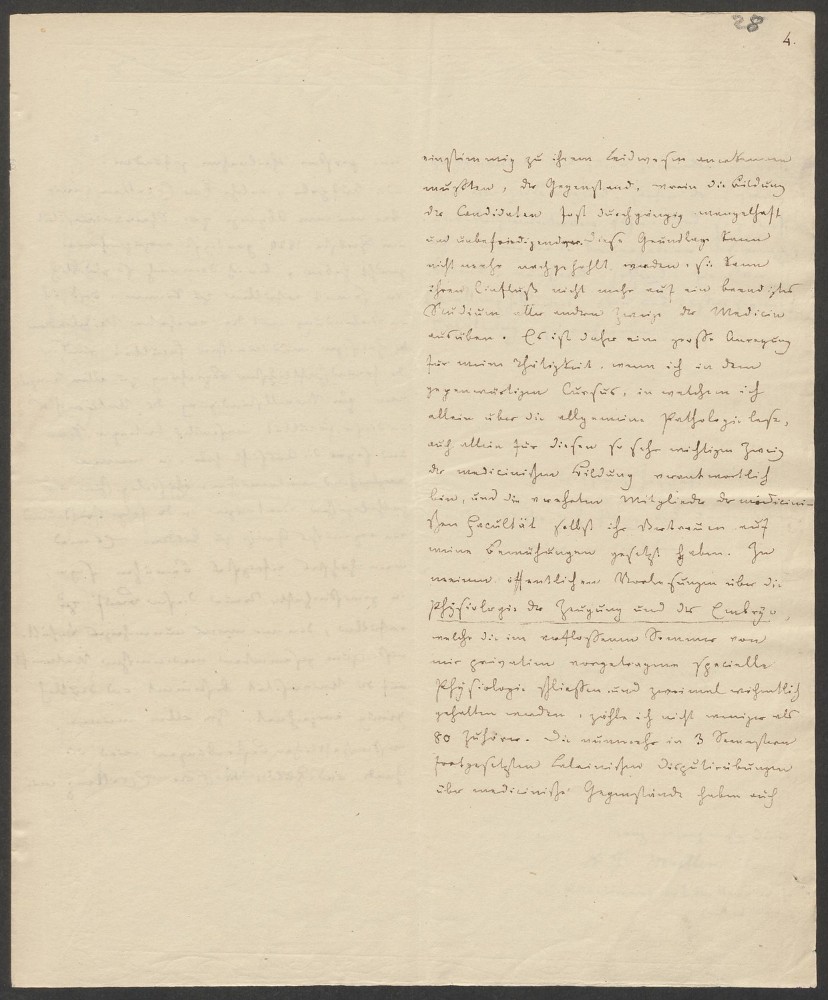 28
4.
einstimmig zu ihrem Leidwesen anerkennen
mußten, der Gegenstand, worin die Bildung
der Candidaten fast durchgängig mangelhaft
und unbefriedigend war. Diese Grundlage kann
nicht mehr nachgehohlt werden, sie kann
ihren Einfluß nicht mehr auf ein beendigtes
Studium aller andern Zweige der Medicin
ausüben. Es ist daher eine große Anregung
für meine Thätigkeit, wenn ich in dem
gegenwärtigen Cursus, in welchem ich
allein über die allgemeine Pathologie lese,
auch allein für diesen so sehr wichtigen Zweig
der medicinischen Bildung verantwortlich
bin, und die verehrten Mitglieder der medicini-
schen Facultät selbst ihr Vertrauen auf
meine Bemühungen gesetzt haben. In
meinen öffentlichen Vorlesungen über die
Physiologie der Zeugung und des Embryo,
welche die im verflossenen Sommer von
mir privatim vorgetragene specielle
Physiologie schließen und zweimal wöchentlich
gehalten werden, zähle ich nicht weniger als
80 Zuhörer. Die nunmehr in 3 Semestern
fortgesetzten Lateinischen Disputirübungen
über medicinische Gegenstände haben auch